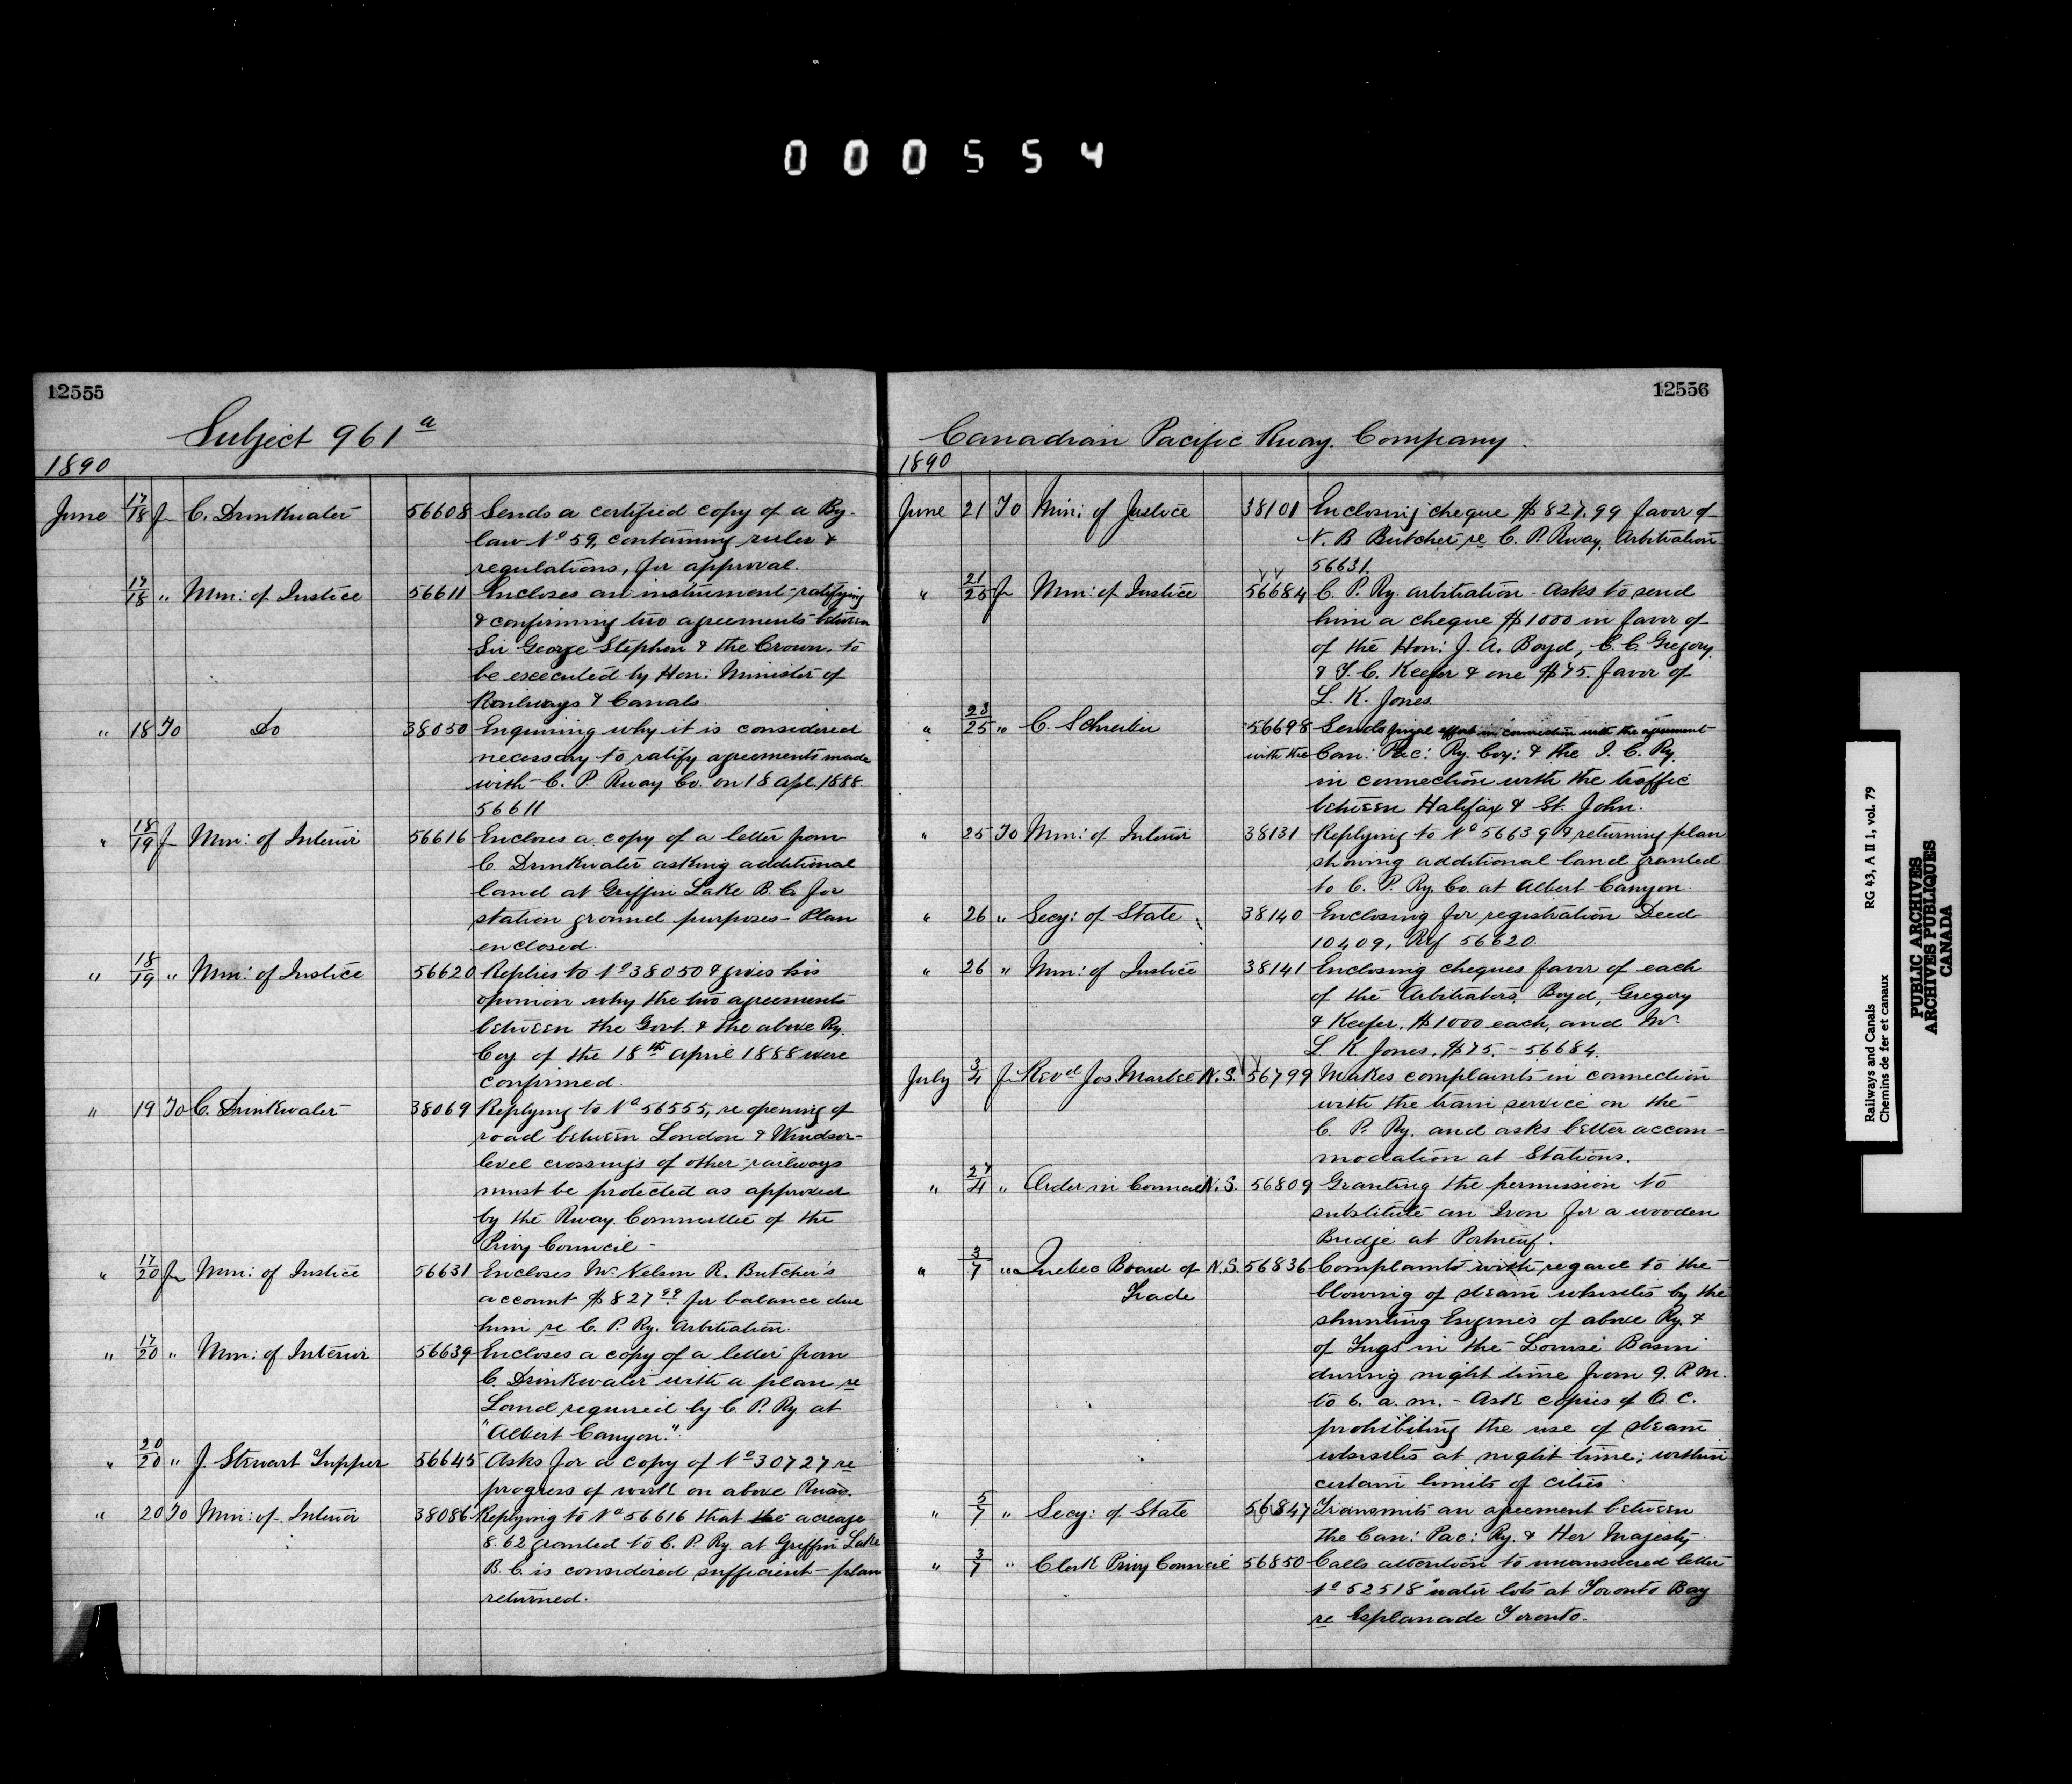 000554
12555
Subject 961 a
1890
June 17/18 fr C. Drinkwater 56608 Sends a certified copy of a By-
law No 59, containing rules &
regulations, for approval.
17/18 " Min: of Justice 56611 Encloses an instrument ratifying
& confirming two agreements between
Sir George Stephen & the Crown, to
be executed by Hon: Minister of
Railways & Canals.
" 18 To Do 38050 Enquiring why it is considered
necessary to ratify agreements made
with C. P. Rway Co. on 18 Apl. 1888.
56611
" 18/19 fr Min: of Interior 56616 Encloses a copy of a letter from
C. Drinkwater asking additional
land at Griffin Lake B.C. for
station ground purposes - Plan
enclosed.
" 18/19 " Min: of Justice 56620 Replies to No 38050 & gives his
opinion why the two agreements
between the Govt. & the above Ry.
Coy of the 18th April 1888 were
confirmed.
" 19 To C. Drinkwater 38069 Replying to No 56555, re opening of
road between London & Windsor -
level crossings of other railways
must be protected as approved
by the Rway. Committee of the
Privy Council -
" 17/20 fr Min: of Justice 56631 Encloses Mr Nelson R. Butcher's
account $827.99 for balance due
him re C. P. Ry. Arbitration.
" 17/20 " Min: of Interior 56639 Encloses a copy of a letter from
C. Drinkwater with a plan re
Land required by C. P. Ry at
"Albert Canyon".
" 20/20 " J. Stewart Tupper 56645 Asks for a copy of No 30727 re
progress of work on above Rway.
" 20 To Min: of Interior 38086 Replying to No 56616 that the acreage
8.62 granted to C. P. Ry. at Griffin Lake
B.C. is considered sufficient - plan
returned.
12556
Canadian Pacific Rway. Company.
1890
June 21 To Min: of Justice 38101 Enclosing cheque $827.99 favor of
N. B Butcher re C. P. Rway. Arbitration
56631.
" 21/23 fr Min: of Justice 56684 C. P. Ry. arbitration. Asks to send
him a cheque $1000 in favor of
of the Hon: J. A. Boyd, C. C. Gregory
& T. C. Keefer & one $75. favor of
L. K. Jones.
" 23/25 " C. Schreiber 56698 Sends in connection with the agreement
with the Can: Pac: Ry. Coy: & the I. C. Ry.
in connection with the traffic
between Halifax & St. John.
" 25 To Min: of Interior 38131 Replying to No 56639 & returning plan
showing additional land granted
to C. P. Ry. Co. at Albert Canyon.
" 26 " Secy: of State 38140 Enclosing for registration Deed
10409, Ref 56620.
" 26 " Min: of Justice 38141 Enclosing cheques favor of each
of the Arbitrators, Boyd, Gregory
& Keefer, $1000 each, and Mr
L. K. Jones, $75. - 56684.
July 3/4 fr Revd Jos. N.S. 56799 Makes complaints in connection
with the train service on the
C. P. Ry. and asks better accom-
modation at Stations.
" 27/4 " Order in Council N.S. 56809 Granting the permission to
substitute an Iron for a wooden
Bridge at Portneuf.
" 3/7 " Quebec Board of N.S. 56836 Complaints with regard to the
Trade blowing of steam whistles by the
shunting Engines of above Ry. &
of Tugs in the Louise Basin
during night time from 9. P.M.
to 6. a.m. - Ask copies of O. C.
prohibiting the use of steam
whistles at night time; within
certain limits of cities.
" 5/7 " Secy: of State 56847 Transmits an agreement between
the Can: Pac: Ry. & Her Majesty.
" 3/7 " Clerk Privy Council 56850 Calls attention to unanswered letter
No 52518 water lots at Toronto Bay
re Esplanade Toronto.
Railways and Canals RG 43, A II 1, vol. 79
Chemins de fer et canaux
PUBLIC ARCHIVES
ARCHIVES PUBLIQUES
CANADA